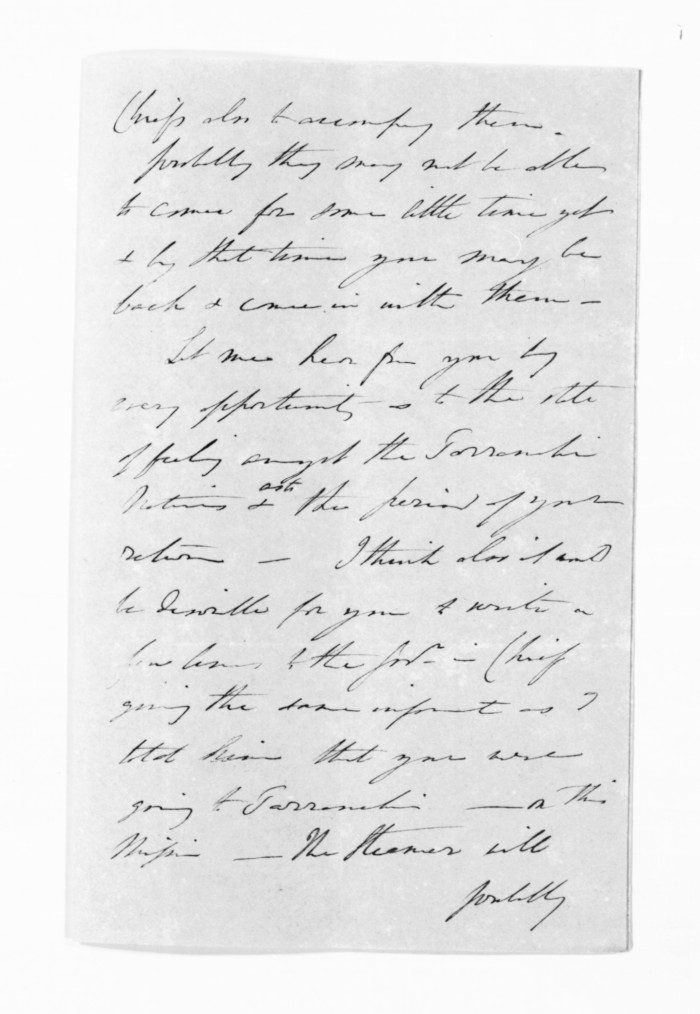 Chiefs also to accompany them -
probably they may not be able
to come for some little time yet
& by that time you may be
back & come in with them -
Let me hear from you by
every opportunity as to the state
of feeling amongst the Tarranaki
Natives & as to the period of your
return - I think also it would
be desirable for you to write a
few lines to the Govr in Chief
giving the same informt as I
told him that you were
going to Tarranaki - on this
Mission - The Steamer will
probably